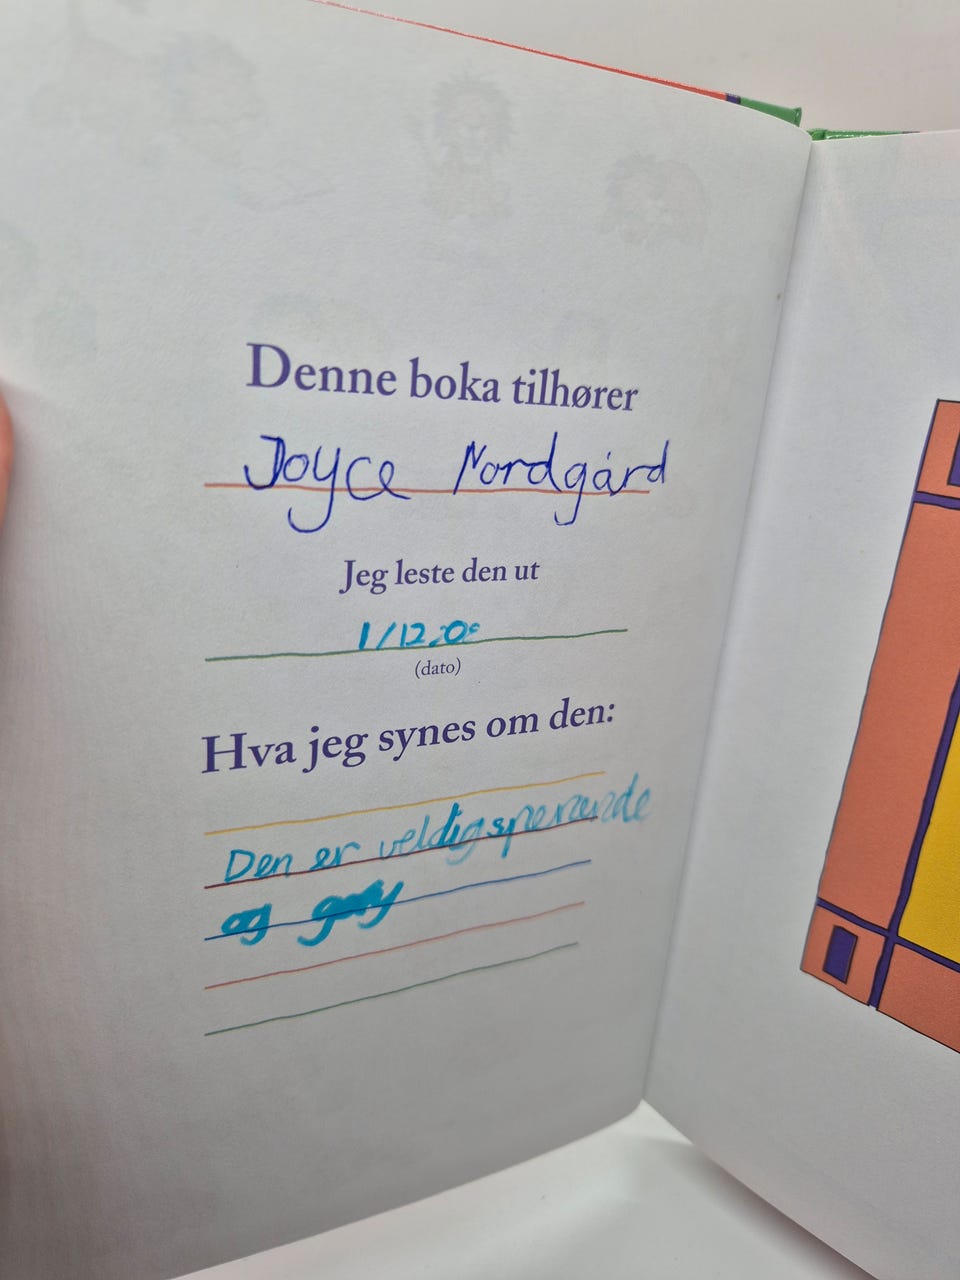 Denne boka tilhører
Joyce Nordgård
Jeg leste den ut
1/12.
(dato)
Hva jeg synes om den:
Den er veldig
og